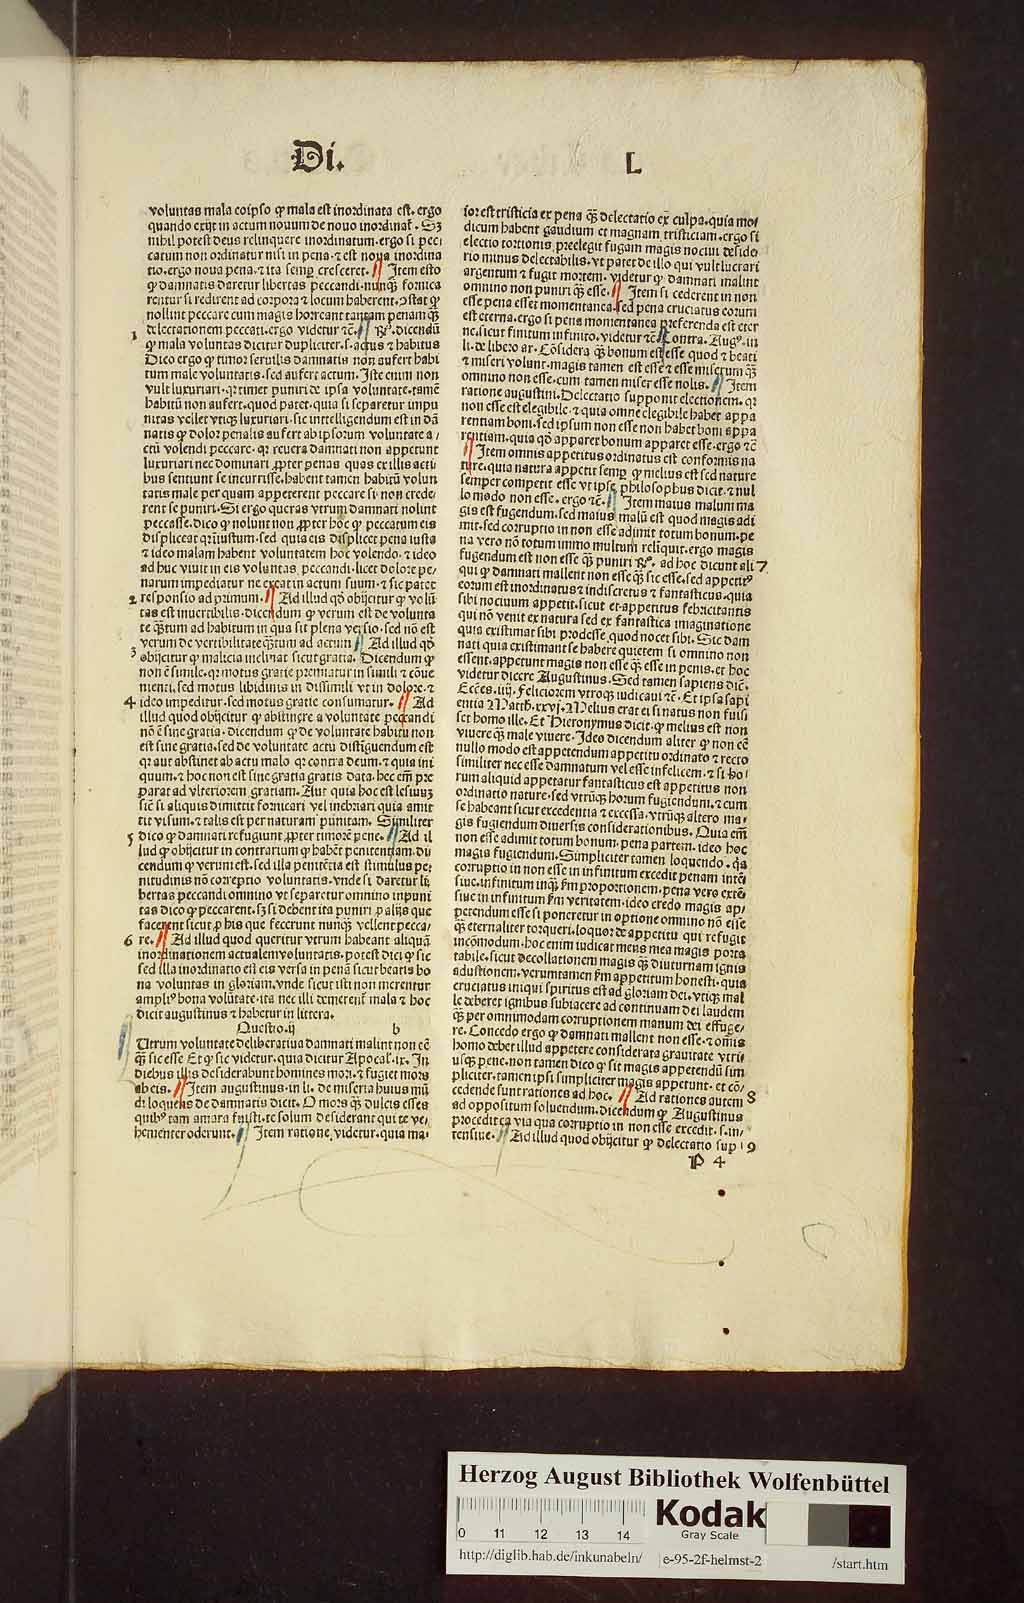 Di.
L
voluntas mala eoipso ꝙ mala est inordinata est. ergo
quando exijt in actum nouum de nouo inordinat᷑. Sꝫ
nihil potest deus relinquere inordinatum. ergo si pecc
catum non ordinatur nisi in pena. ⁊ est noua inordina
tio. ergo noua pena. ⁊ ita semꝑ cresceret. Item esto
ꝙ damnatis daretur libertas peccandi. nunꝙ̃ fornica
rentur si redirent ad corpora ⁊ locum haberent. ꝯstat ꝙ
nollint peccare cum magis horreant tantam penam ꝙ̃
delectationem peccati. ergo videtur ⁊c̃. R̃. dicendũ
1
ꝙ mala voluntas dicitur dupliciter. s. actus ⁊ habitus
Dico ergo ꝙ timor seruilis damnatis non aufert habi
tum male voluntatis. sed aufert actum. Iste enim non
vult luxuriari. qꝛ timet puniri de ipsa voluntate. tamẽ
habitũ non aufert. quod patet. quia si separetur impu
nitas vellet vtiqꝫ luxuriari. sic intelligendum est in dã
natis ꝙ dolor penalis aufert ab ipsorum voluntate a/
ctũ volendi peccare. qꝛ reuera damnati non appetunt
luxuriari nec dominari ꝓpter penas quas ex illis acti
bus sentiunt se incurrisse. habent tamen habitũ volun
tatis male per quam appeterent peccare si non crede/
rent se puniri. Si ergo queras vtrum damnati nolint
peccasse. dico ꝙ nolunt non ꝓpter hoc ꝙ peccatum eis
displiceat qꝛ iniustum. sed quia eis displicet pena iusta
⁊ ideo malam habent voluntatem hoc volendo. ⁊ ideo
ad huc viuit in eis voluntas peccandi. licet dolore pe/
narum impediatur ne exeat in actum suum. ⁊ sic patet
2
responsio ad primum. Ad illud qđ obijcitur ꝙ volũ
tas est inuertibilis. dicendum ꝙ verum est de volunta
te ꝙ̃tum ad habitum in qua sit plena versio. sed nõ est
verum de vertibilitate ꝙ̃tum ad actum. Ad illud qđ
3
obijcitur ꝙ malicia inclinat sicut gratia. Dicendum ꝙ
non ẽ simile. qꝛ motus gratie premiatur in simili ⁊ cõue
nienti. sed motus libidinis in dissimili vt in dolore. ⁊
4
ideo impeditur. sed motus gratie consumatur. Ad
illud quod obijcitur ꝙ abstinere a voluntate peccandi
nõ ẽ sine gratia. dicendum ꝙ de voluntate habitu non
est sine gratia. sed de voluntate actu distiguendum est
qꝛ aut abstinet ab actu malo qꝛ contra deum. ⁊ quia ini
quum. ⁊ hoc non est sine gratia gratis data. hec em̃ pre
parat ad vlteriorem gratiam. Aut quia hoc est lesiuuꝫ
sic̃ si aliquis dimittit fornicari vel inebriari quia amit
tit visum. ⁊ talis est per naturam punitam. Similiter
5
dico ꝙ damnati refugiunt ꝓpter timorẽ pene. Ad il
lud ꝙ obijcitur in contrarium ꝙ habẽt penitentiam. di
cendum ꝙ verum est. sed illa penitẽtia est stimulus pe/
nitudinis nõ correptio voluntatis. vnde si daretur li/
bertas peccandi omnino vt separetur omnino inpuni
tas dico ꝙ peccarent. sꝫ si debent ita puniri ꝓ alijs que
facerent sicut ꝓ his que fecerunt nunꝙ̃ vellent pecca/
6
re. Ad illud quod queritur vtrum habeant aliquã
inordinationem actualem voluntatis. potest dici ꝙ sic
sed illa inordinatio est eis versa in penã sicut beatis bo
na voluntas in gloriam. vnde sicut isti non merentur
ampliꝰ bona volũtate. ita nec illi demerent᷑ mala ⁊ hoc
dicit augustinus ⁊ habetur in littera.
Questio. ij b
Utrum voluntate deliberatiua damnati malint non eẽ
ꝙ̃ sic esse Et ꝙ sic videtur. quia dicitur Apocal̃. ix. In
diebus illis desiderabunt homines mori. ⁊ fugiet mors
ab eis. Item augustinus in li. de miseria huius mũ
di loquens de damnatis dicit. O mors ꝙ̃ dulcis esses
quibꝰ tam amara fuisti. te solum desiderant qui te ve/
hementer oderunt. Item ratione videtur. quia ma/
ior est tristicia ex pena ꝙ̃ delectatio ex culpa. quia mo/
dicum habent gaudium et magnam tristiciam. ergo si
electio tortionis preelegit fugam magis nociui deside/
rio minus delectabilis. vt patet de illo qui vult lucrari
argentum ⁊ fugit mortem. videtur ꝙ damnati malint
omnino non puniri ꝙ̃ esse. Item si cederent in non
esse pena esset momentanea. sed pena cruciatus eorum
est eterna. ergo si pena momentanea preferenda est eter
ne. sicut finitum infinito. videtur ⁊c̃. Contra. Augꝰ. in
li. de libero ar. Cõsidera ꝙ̃ bonum est esse quod ⁊ beati
⁊ miseri volunt. magis tamen est esse ⁊ esse miserum ꝙ̃
omnino non esse. cum tamen miser esse nolis. Item
ratione augustini. Delectatio supponit electionem. qꝛ
non esse est elegibile. ⁊ quia omne elegibile habet appa
rentiam boni. sed ipsum non esse non habet boni appa
rentiam. quia qđ apparet bonum apparet esse. ergo ⁊c̃
Item omnis appetitus ordinatus est conformis na
ture. quia natura appetit semꝑ ꝙ melius est sed nature
semper competit esse vt ipse philosophus dicit. ⁊ nul
lo modo non esse. ergo ⁊c̃. Item maius malum ma
gis est fugendum. sed maius malũ est quod magis adi
mit. sed corruptio in non esse adimit totum bonum. pe
na vero nõ totum immo multum reliquit. ergo magis
fugendum est non esse ꝙ̃ puniri R̃. ad hoc dicunt ali
7
qui ꝙ damnati mallent non esse ꝙ̃ sic esse. sed appetitꝰ
eorum est inordinatus ⁊ indiscretus ⁊ fantasticus. quia
sibi nociuum appetit. sicut et appetitus febricitantis
qui nõ venit ex natura sed ex fantastica imaginatione
quia existimat sibi prodesse quod nocet sibi. Sic dam
nati quia existimant se habere quietem si omnino non
essent. appetunt magis non esse ꝙ̃ esse in penis. et hoc
videtur dicere Augustinus. Sed tamen sapiens dic̃.
Ecces. iiij. Feliciorem vtroqꝫ iudicaui ⁊c̃. Et ipsa sapi
entia Matth. xxvj. Melius erat ei si natus non fuis/
set homo ille. Et Hieronymus dicit. ꝙ melius est non
viuere ꝙ̃ male viuere. Ideo dicendum aliter ꝙ non eẽ
nullo modo est appetendum appetitu ordinato ⁊ recto
similiter nec esse damnatum vel esse infelicem. ⁊ si ho/
rum aliquid appetatur fantasticus est appetitus non
ordinatio nature. sed vtrũqꝫ horum fugiendum. ⁊ cum
se habeant sicut excedentia ⁊ excessa. vtrũqꝫ altero ma/
gis fugiendum diuersis considerationibus. Quia em̃
non esse adimit totum bonum. pena partem. ideo hoc
magis fugiendum. Simpliciter tamen loquendo. qꝛ
corruptio in non esse in infinitum excedit penam intẽ/
siue. infinitum inqꝫ ẜm proportionem. pena vero extẽ/
siue in infinitum ẜm veritatem. ideo credo magis ap/
petendum esse si poneretur in optione omnino nõ esse
ꝙ̃ eternaliter torqueri. loquor de appetitu qui refugit
incõmodum. hoc enim iudicat mens mea magis porta
tabile. sicut decollationem magis ꝙ̃ diuturnam ignis
adustionem. verumtamen ẜm appetitum honesti. quia
cruciatus iniqui spiritus est ad gloriam dei. vtiqꝫ mal
le deberet ignibus subiacere ad continuam dei laudem
ꝙ̃ per omnimodam corruptionem manum dei effuge/
re. Concedo ergo ꝙ damnati mallent non esse. ⁊ omĩs
homo debet illud appetere considerata grauitate vtri/
usqꝫ pene. non tamen dico ꝙ sit magis appetendũ sim
pliciter. tamen ipsi simpliciter magis appetunt. et cõ/
cedende sunt rationes ad hoc. Ad rationes autem
8
ad oppositum soluendum. dicendum ꝙ Augustinus
procedit ea via qua corruptio in non esse excedit. s. in/
tensiue. Ad illud quod obijcitur ꝙ delectatio sup
9
P 4
Herzog August Bibliothek Wolfenbüttel
0 11 12 13 14
Kodak
Gray Scale
http://diglib.hab.de/inkunabeln/ e-95-2f-helmst-2 /start.htm